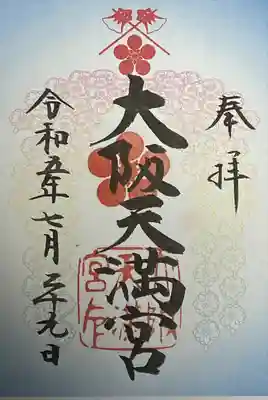 奉拝
大阪天満宮
令和五年七月二十九日